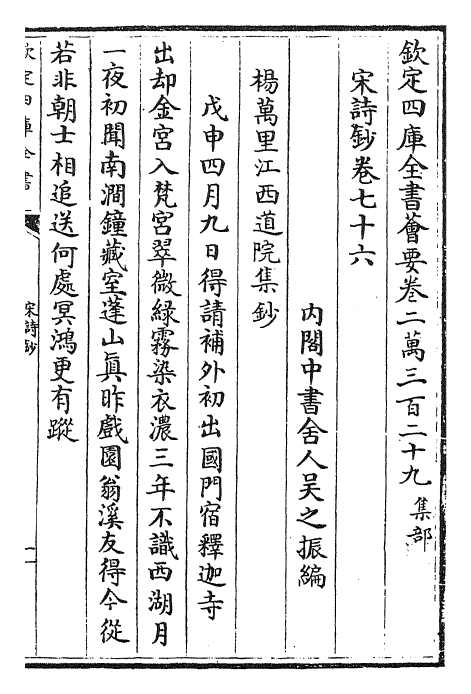 欽定四庫全書薈要卷二萬三百二十九集部
宋詩鈔卷七十六
內閣中書舍人吳之振編
楊萬里江西道院集鈔
戊申四月九日得請補外初出國門宿釋迦寺
出却金宮入梵宮翠微緑霧染衣濃三年不識西湖月
一夜初聞南澗鐘藏室蓬山真昨戲園翁溪友得今從
若非朝士相追送何處冥鴻更有蹤
欽定四庫全書
宋詩鈔
一